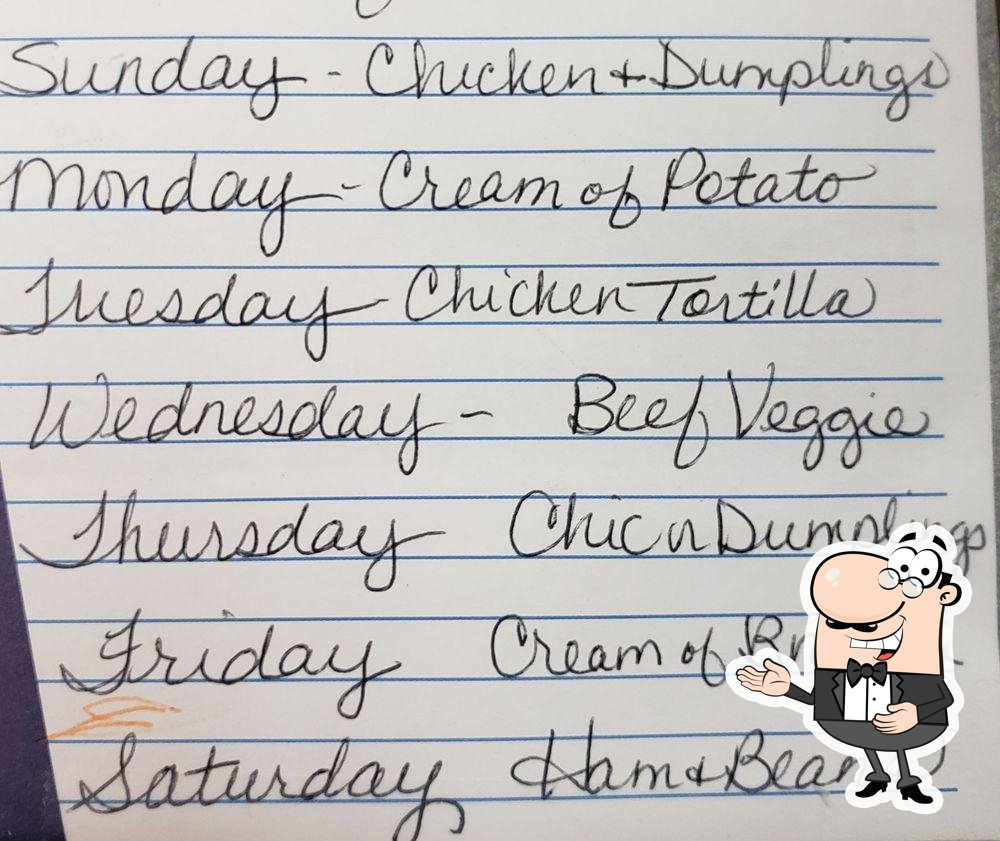 Sunday - Chicken + Dumplings
Monday - Cream of Potato
Tuesday - Chicken Tortilla
Wednesday - Beef Veggie
Thursday Chic n Dumplings
Friday Cream of
Saturday Ham + Bean